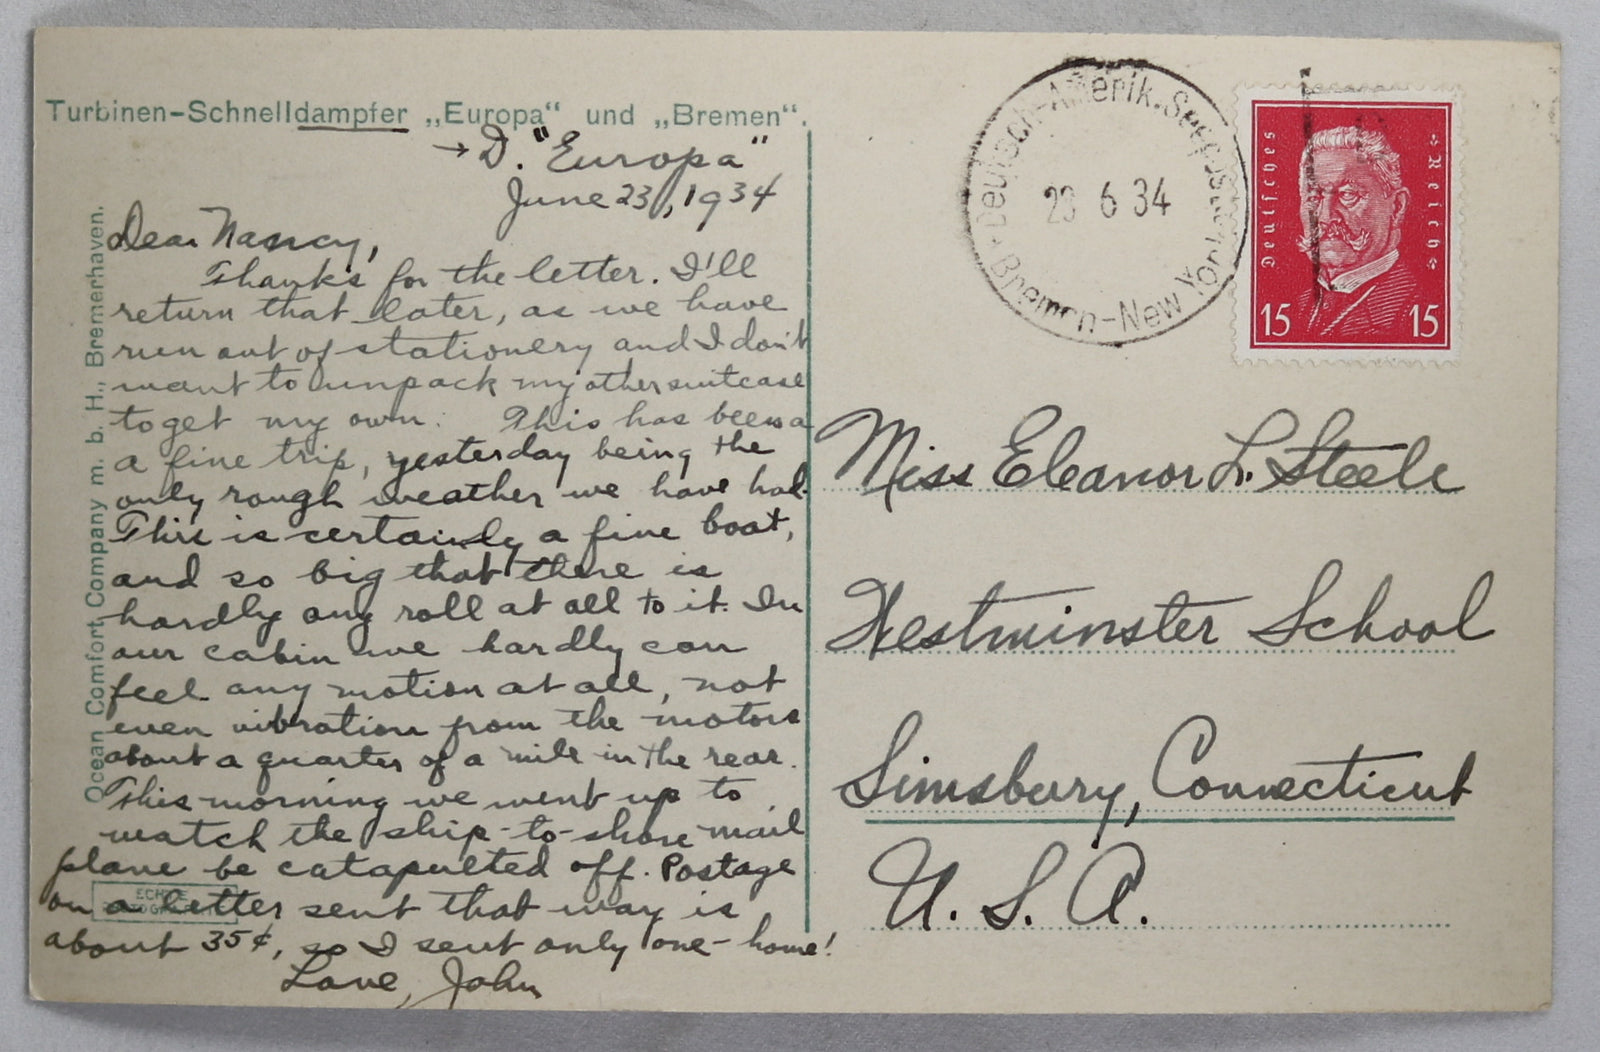 Turbinen-Schnelldampfer „Europa“ und „Bremen“.
→ D. "Europa"
June 23, 1934
Dear Nancy,
Thanks for the letter. I'll
return that later, as we have
run out of stationery and I don't
want to unpack my other suitcase
to get my own. This has been a
a fine trip, yesterday being the
only rough weather we have had.
This is certainly a fine boat,
and so big that there is
hardly any roll at all to it. In
our cabin we hardly can
feel any motion at all, not
even vibration from the motors
about a quarter of a mile in the rear.
This morning we went up to
watch the ship-to-shore mail
plane be catapulted off. Postage
on a letter sent that way is
about 35¢, so I sent only one - home!
Love, John
Ocean Comfort Company m. b. H., Bremerhaven.
ECHTE
Deutsch-Amerik. Seepost
23 6 34
Bremen-New York
Deutsches Reich
15 15
Miss Eleanor L. Steele
Westminster School
Simsbury, Connecticut
U. S. A.